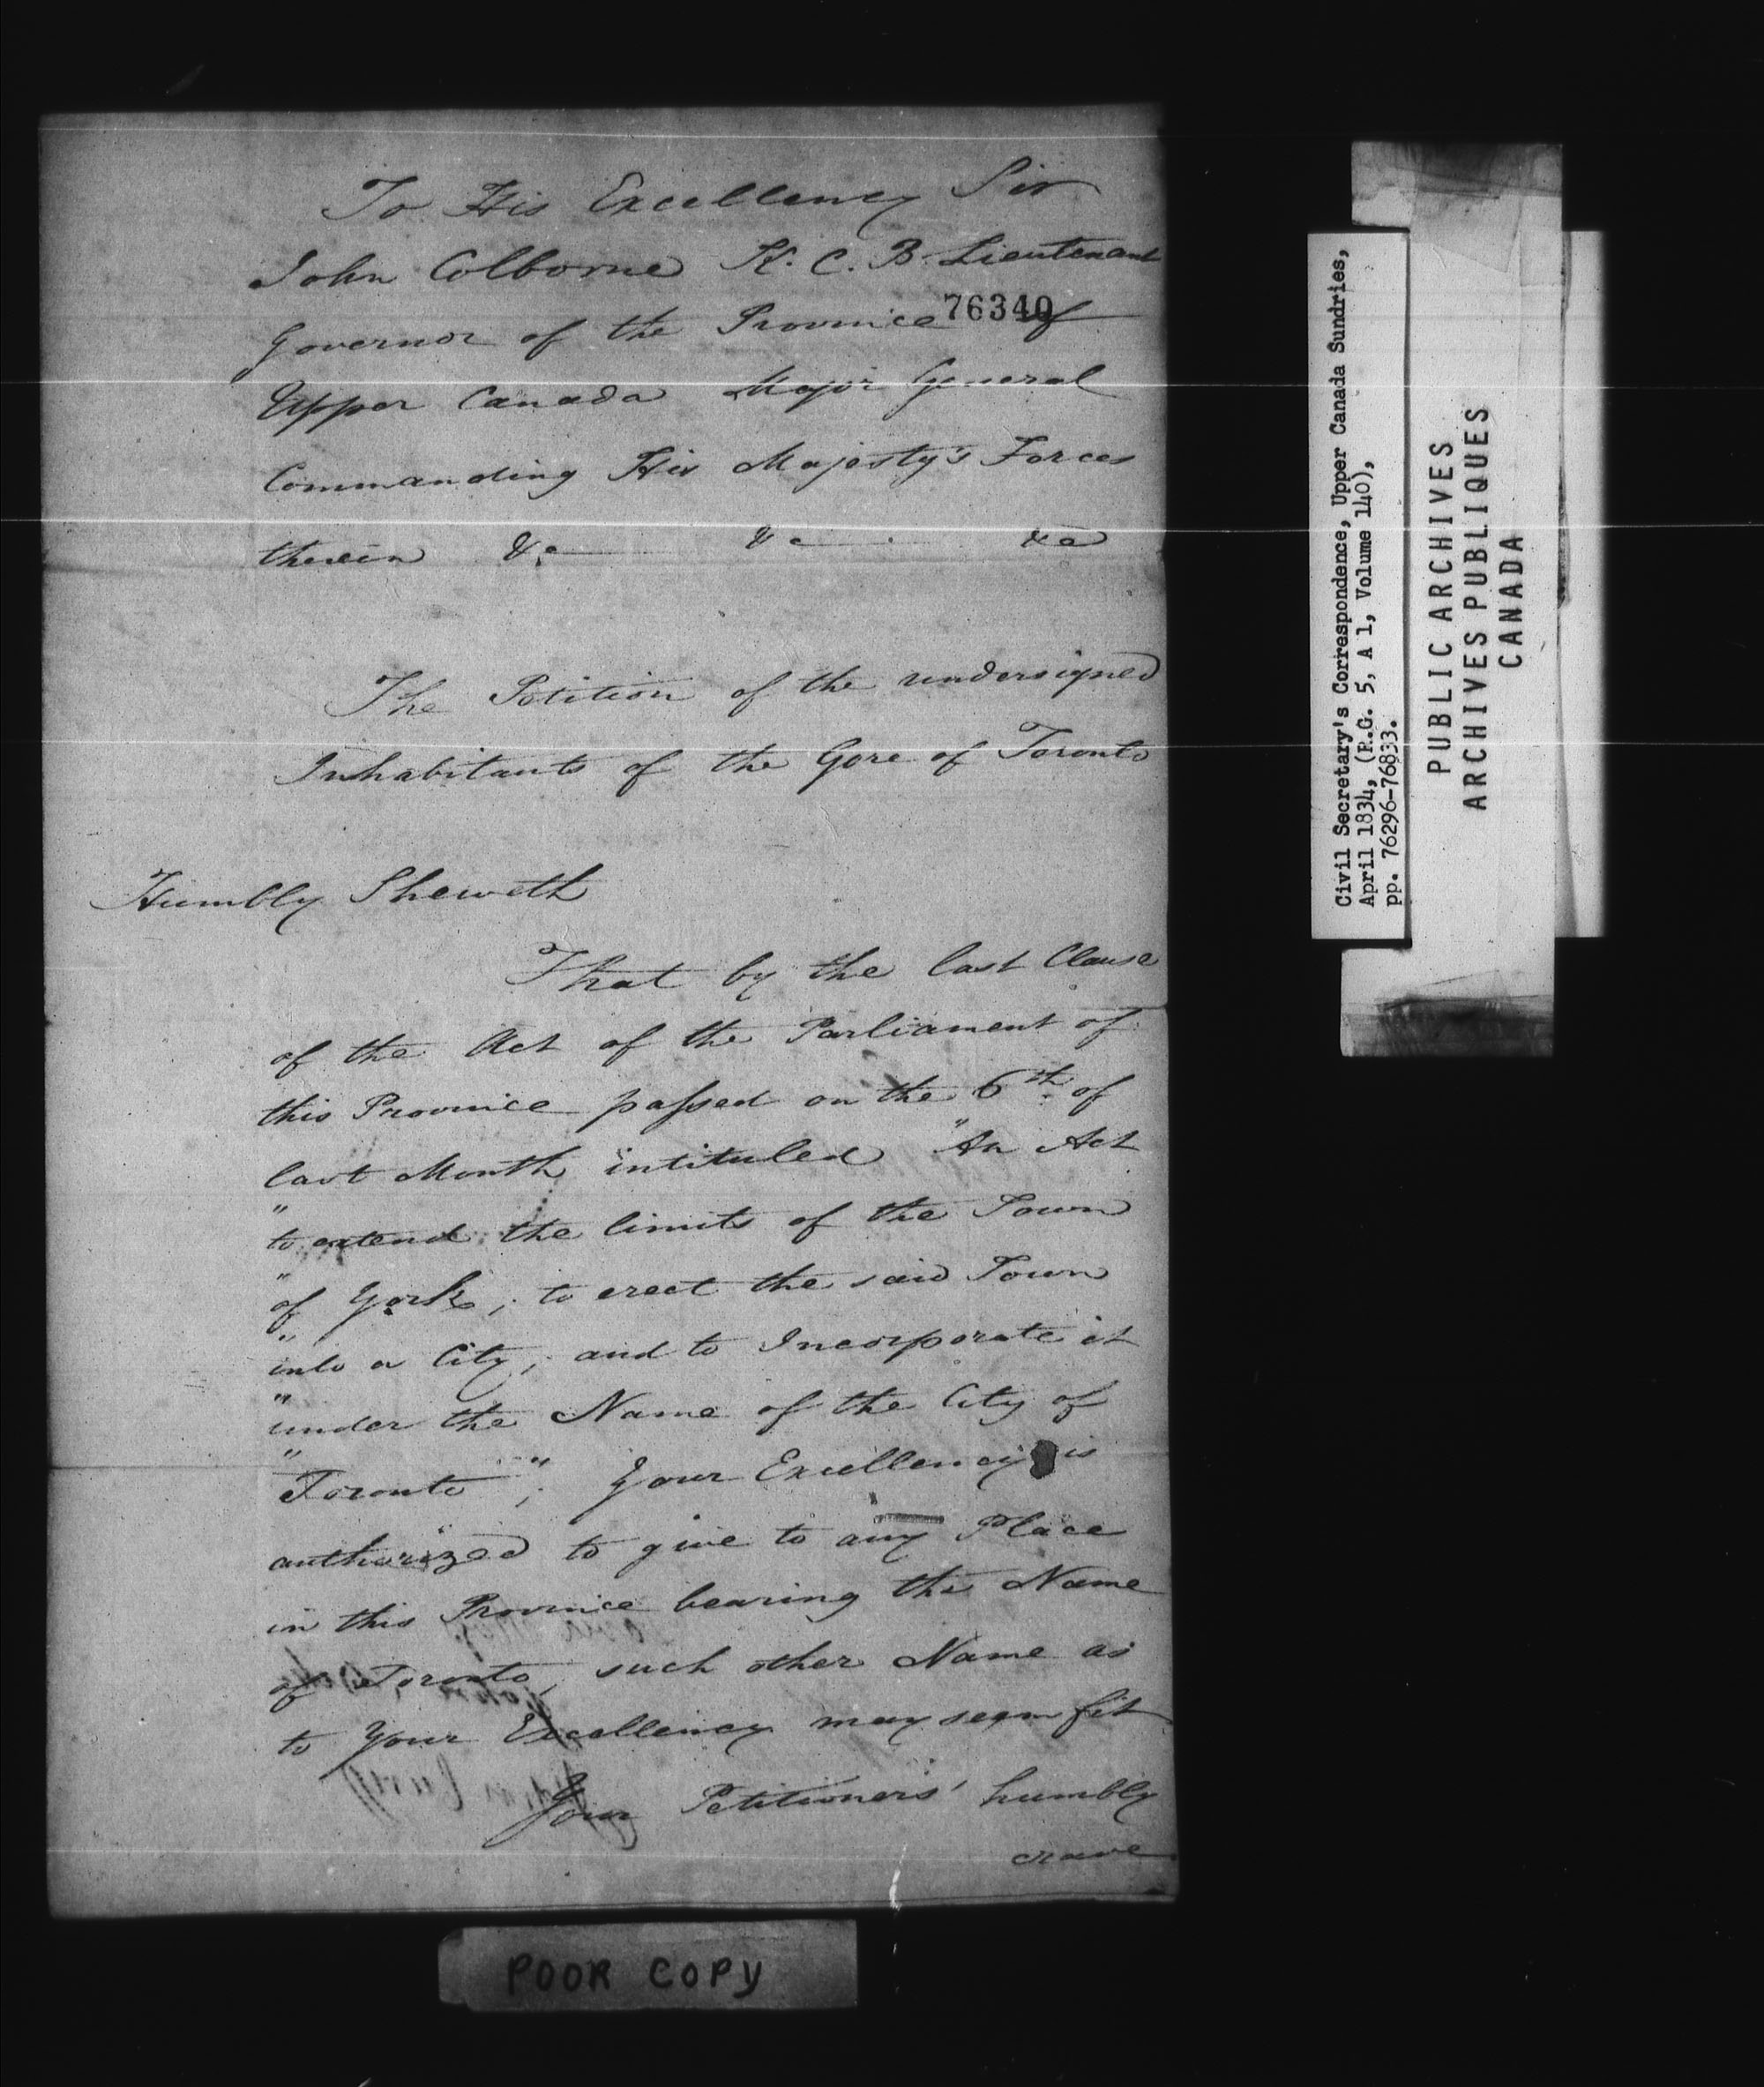 To His Excellency Sir
John Colborne K. C. B. Lieutenant
76340
Governor of the Province of
Upper Canada Major General
Commanding His Majesty's Forces
therein &c &c &c
The Petition of the undersigned
Inhabitants of the Gore of Toronto
Humbly Sheweth
That by the last Clause
of the Act of the Parliament of
this Province passed on the 6th of
last Month intituled "An Act
"to extend the limits of the Town
"of York; to erect the said Town
"into a City; and to Incorporate it
"under the Name of the City of
"Toronto"; Your Excellency is
authorized to give to any Place
in this Province bearing the Name
of Toronto, such other Name as
to Your Excellency may seem fit
Your Petitioners' humbly
crave
POOR COPY
Civil Secretary's Correspondence, Upper Canada Sundries,
April 1834, (R.G. 5, A 1, Volume 140),
pp. 76296-76833.
PUBLIC ARCHIVES
ARCHIVES PUBLIQUES
CANADA